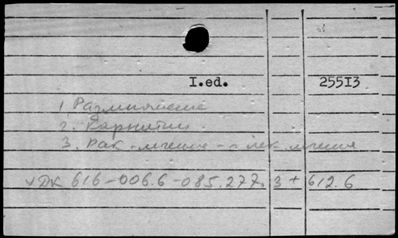 I.ed. 25513
1. Размножение
2. Карнитин
3. Рак - лечение -
УДК 616-006.6-085.277.3+612.6